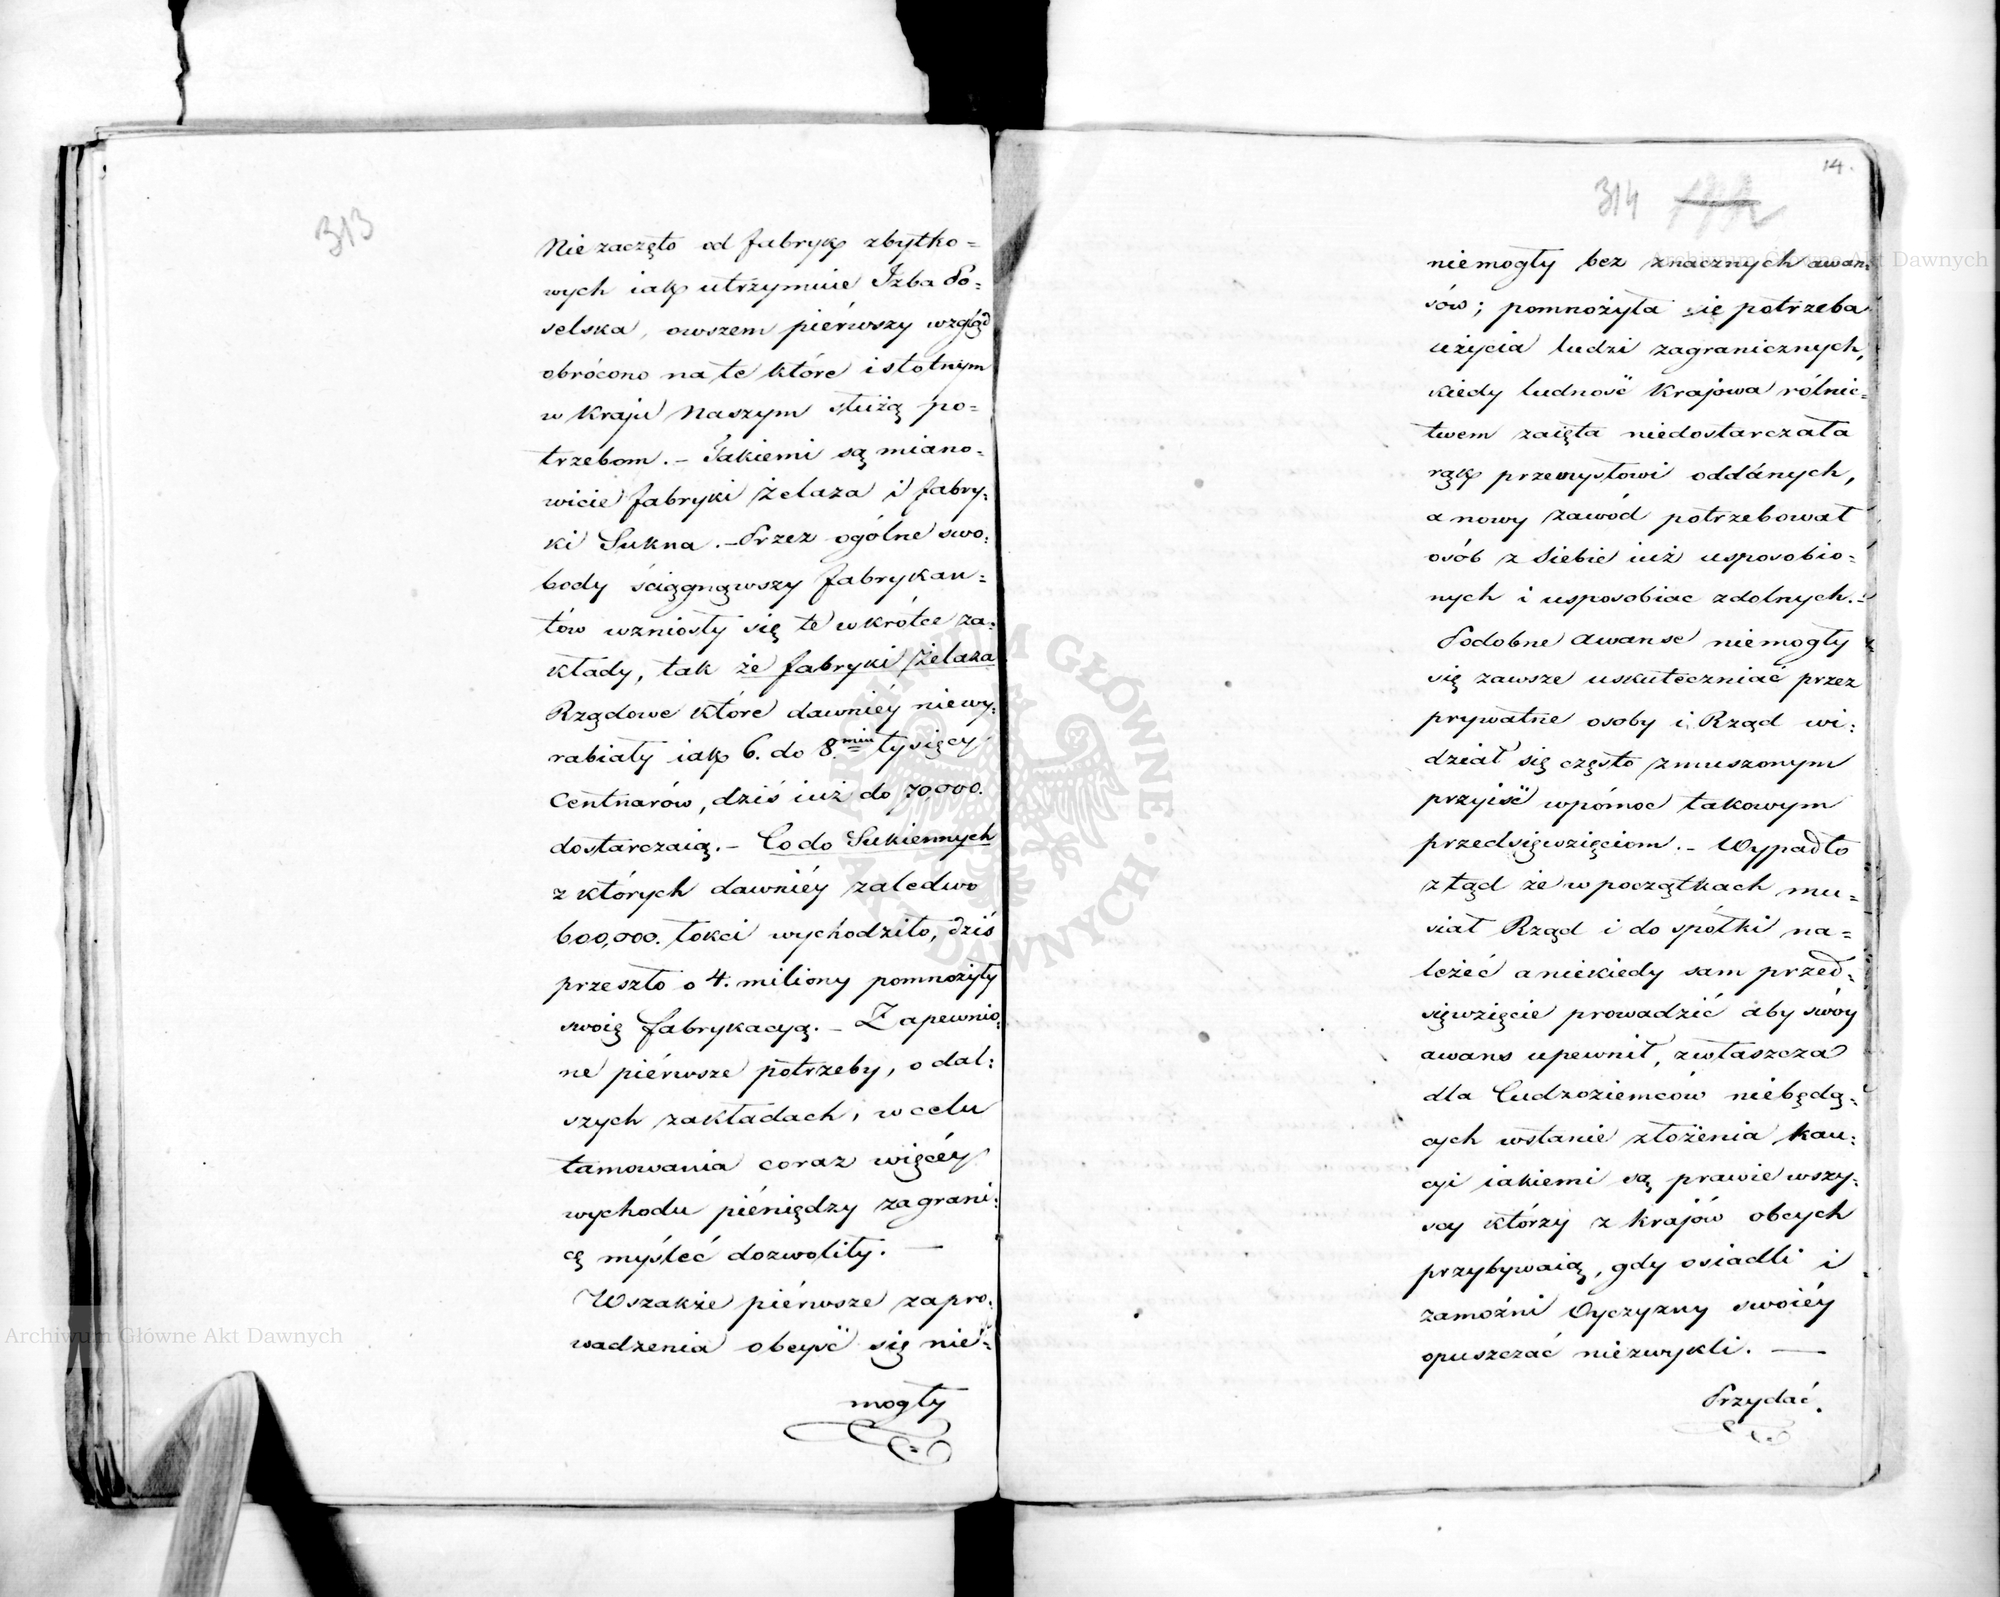 313
Nie zaczęto od fabryk zbytko=
wych iak utrzymuie Izba Po=
selska, owszem piérwszy wzgląd
obrócono na te które istotnym
w kraju Naszym służą po=
trzebom. – Takiemi są miano=
wicie fabryki żelaza i fabry=
ki Sukna. – Przez ogólne swo=
body ściągnąwszy fabrykan=
tów wzniosły się te wkrótce za=
kłady, tak że fabryki żelaza
Rządowe które dawniéy niewy=
rabiały iak 6. do 8.miu tysięcy
Centnarów, dziś iuż do 70,000.
dostarczaią. – Co do Sukiennych
z których dawniéy zaledwo
600,000. łokci wychodziło, dziś
przeszło o 4. miliony pomnożyły
swoię fabrykacyą. – Zapewnio=
ne piérwsze potrzeby, o dal=
szych zakładach, w celu
tamowania coraz więcéy
wychodu piéniędzy zagrani=
cę myśleć dozwoliły. —
Wszakże piérwsze zapro=
wadzenia obeyść się nie=
mogły
14.
314
niemogły bez znacznych awan=
sów; pomnożyła się potrzeba
użycia ludzi zagranicznych,
kiedy ludność Krajowa rólnic=
twem zaięta niedostarczała
rąk przemysłowi oddánych,
a nowy zawód potrzebował
osób z Siebie iuż usposobio=
nych i usposobiac zdolnych. –
Podobne awanse niemogły
się zawsze uskuteczniać przez
prywatne osoby i Rząd wi=
dział się często zmuszonym
przyiść w pómoc takowym
przedsięwzięciom. – Wypadło
ztąd że w początkach mu=
siał Rząd i do spółki na=
leżeć a niekiedy sam przed=
sięwzięcie prowadzić aby swóy
awans upewnił, zwłaszcza
dla Cudzoziemców niebędą=
cych wstanie złożenia kau=
cyi iakiemi są prawie wszy=
scy którzy z krajów obcych
przybywaią, gdy osiadli i
zamożni Oyczyzny swoiéy
opuszczać niezwykli. —
Przydać.
Archiwum Główne Akt Dawnych
Archiwum Główne Akt Dawnych
ARCHIWUM GŁÓWNE · AKT DAWNYCH ·